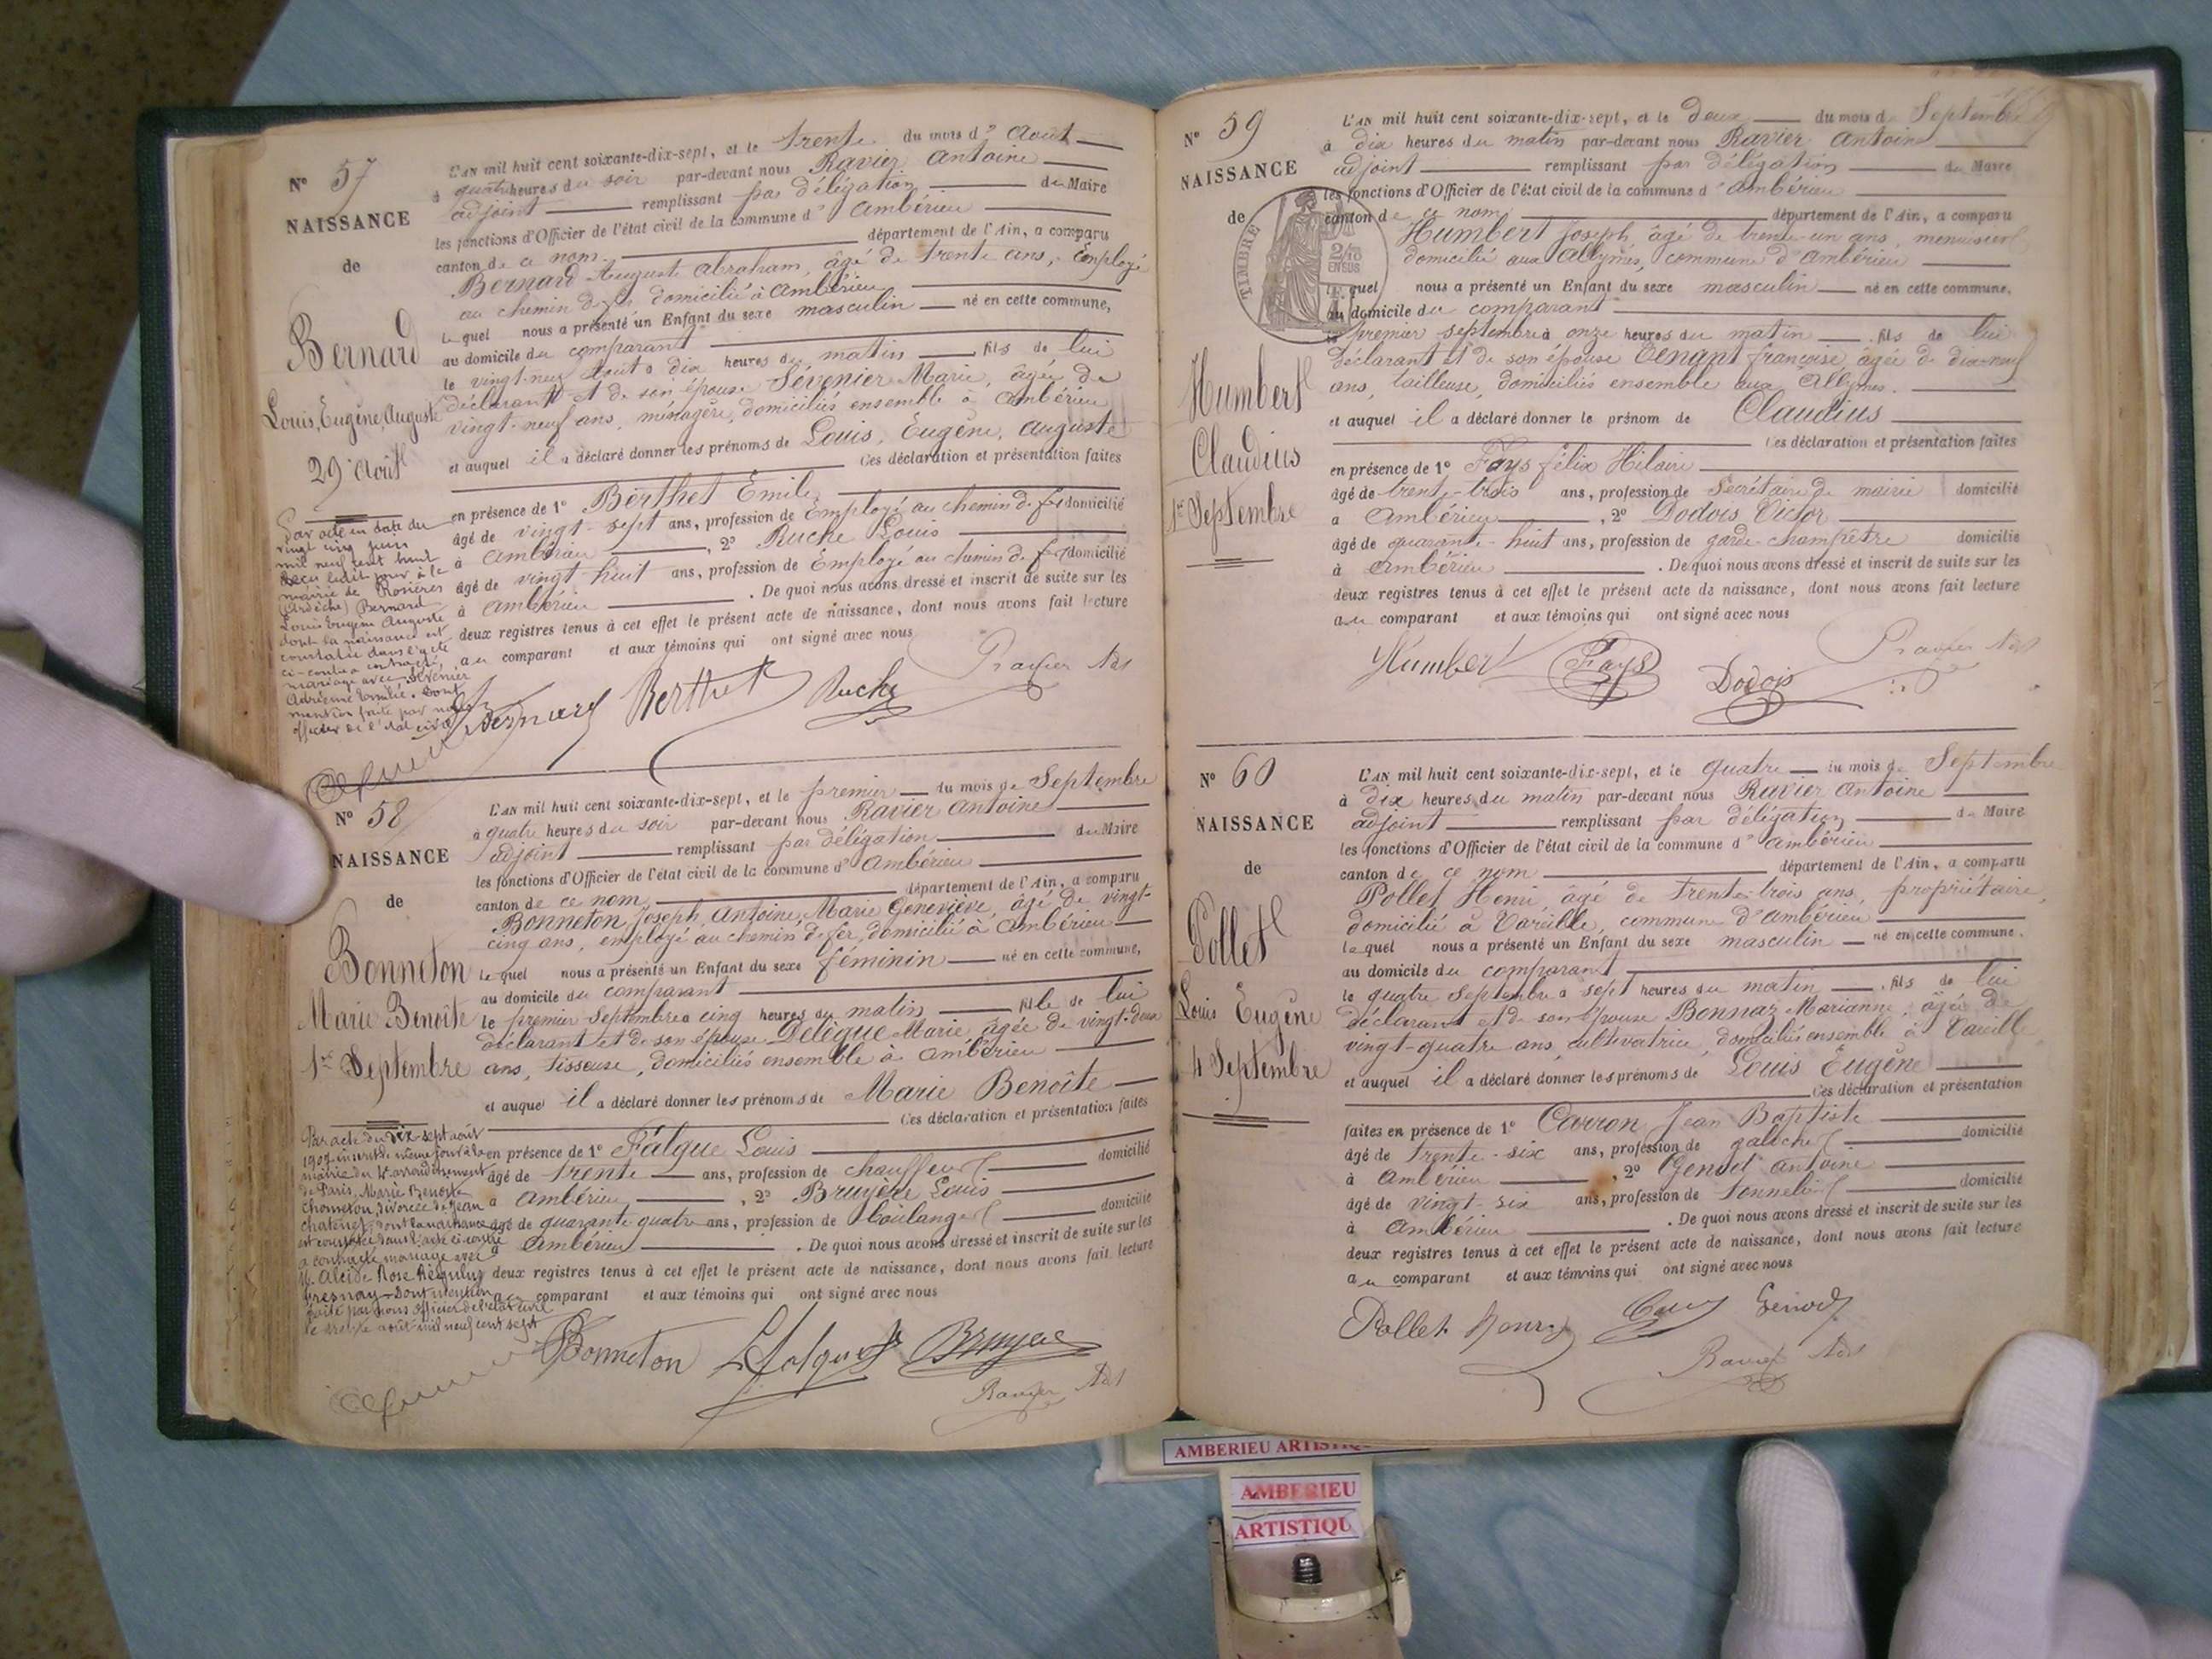 N° 57
NAISSANCE
de
Bernard
Louis, Eugène, Auguste
29 Août
Par acte en date du
vingt cinq juin
mil neuf cent
mairie de Rosières
(Ardèche) Bernard
Louis Eugène Auguste
dont la naissance est
constatée dans l'acte
ci-contre a contracté
mariage avec Sévenier
Adrienne Emilie. Dont
mention faite par nous
officier de l'état civil
L'AN mil huit cent soixante-dix-sept, et le trente du mois d'Août
à quatre heures du soir par-devant nous Ravier Antoine
adjoint remplissant par délégation du Maire
les fonctions d'Officier de l'état civil de la commune d'Ambérieu
canton de ce nom département de l'Ain, a comparu
Bernard Auguste Abraham, âgé de trente ans, Employé
au chemin de fer domicilié à Ambérieu
lequel nous a présenté un Enfant du sexe masculin né en cette commune,
au domicile du comparant
le vingt-neuf Août à dix heures du matin fils de lui
déclarant et de son épouse Sévenier Marie, âgée de
vingt-neuf ans, ménagère, domiciliés ensemble à Ambérieu
et auquel il a déclaré donner les prénoms de Louis, Eugène, Auguste
Ces déclaration et présentation faites
en présence de 1° Berthet Emile
âgé de vingt-sept ans, profession de Employé au chemin de fer domicilié
à Ambérieu, 2° Ruche Louis
âgé de vingt-huit ans, profession de Employé au chemin de fer domicilié
à Ambérieu. De quoi nous avons dressé et inscrit de suite sur les
deux registres tenus à cet effet le présent acte de naissance, dont nous avons fait lecture
au comparant et aux témoins qui ont signé avec nous
Bernard Berthet Ruche Ravier Adt
N° 58
NAISSANCE
de
Bonneton
Marie Benoîte
1er Septembre
Par acte du dix-sept août
1907 inscrit le même jour à la
mairie du 4e arrondissement
de Paris, Marie Benoîte
divorcée de Jean
dont la naissance
est constatée dans l'acte ci-contre
a contracté mariage avec
M. Alcide Rose
Fresnay. Dont mention
faite par nous officier de l'état civil
le août mil neuf cent sept
L'AN mil huit cent soixante-dix-sept, et le premier du mois de Septembre
à quatre heures du soir par-devant nous Ravier Antoine
adjoint remplissant par délégation du Maire
les fonctions d'Officier de l'état civil de la commune d'Ambérieu
canton de ce nom département de l'Ain, a comparu
Bonneton Joseph, Antoine, Marie Geneviève, âgé de vingt-
cinq ans, employé au chemin de fer, domicilié à Ambérieu
lequel nous a présenté un Enfant du sexe féminin né en cette commune,
au domicile du comparant
le premier Septembre à cinq heures du matin fille de lui
déclarant et de son épouse Delègue Marie, âgée de vingt-deux
ans, tisseuse, domiciliés ensemble à Ambérieu
et auquel il a déclaré donner les prénoms de Marie Benoîte
Ces déclaration et présentation faites
en présence de 1° Falque Louis
âgé de trente ans, profession de chauffeur domicilié
à Ambérieu, 2° Bruyère Louis
âgé de quarante quatre ans, profession de boulanger domicilié
à Ambérieu. De quoi nous avons dressé et inscrit de suite sur les
deux registres tenus à cet effet le présent acte de naissance, dont nous avons fait lecture
au comparant et aux témoins qui ont signé avec nous
Bonneton L Falque Bruyère
Ravier Adt
N° 59
NAISSANCE
de
TIMBRE
2/10
EN SUS
Humbert
Claudius
1er Septembre
L'AN mil huit cent soixante-dix-sept, et le deux du mois de Septembre
à dix heures du matin par-devant nous Ravier Antoine
adjoint remplissant par délégation du Maire
les fonctions d'Officier de l'état civil de la commune d'Ambérieu
canton de ce nom département de l'Ain, a comparu
Humbert Joseph âgé de trente-un ans, menuisier
domicilié aux Allymes, commune d'Ambérieu
lequel nous a présenté un Enfant du sexe masculin né en cette commune,
au domicile du comparant
le premier septembre à onze heures du matin fils de lui
déclarant et de son épouse Tenant françoise, agée de dix-neuf
ans, tailleuse, domiciliés ensemble aux Allymes.
et auquel il a déclaré donner le prénom de Claudius
Ces déclaration et présentation faites
en présence de 1° Fays félix Hilaire
âgé de trente-trois ans, profession de Secrétaire de mairie domicilié
à Ambérieu, 2° Dodois Victor
âgé de quarante-huit ans, profession de garde-champêtre domicilié
à Ambérieu. De quoi nous avons dressé et inscrit de suite sur les
deux registres tenus à cet effet le présent acte de naissance, dont nous avons fait lecture
au comparant et aux témoins qui ont signé avec nous
Humbert Fays Dodois Ravier Adt
N° 60
NAISSANCE
de
Pollet
Louis Eugène
4 Septembre
L'AN mil huit cent soixante-dix-sept, et le quatre du mois de Septembre
à dix heures du matin par-devant nous Ravier Antoine
adjoint remplissant par délégation du Maire
les fonctions d'Officier de l'état civil de la commune d'Ambérieu
canton de ce nom département de l'Ain, a comparu
Pollet Henri, âgé de trente-trois ans, propriétaire,
domicilié à Vareille, commune d'Ambérieu
lequel nous a présenté un Enfant du sexe masculin né en cette commune,
au domicile du comparant
le quatre Septembre à sept heures du matin fils de lui
déclarant et de son épouse Bonnaz Marianne, âgée de
vingt-quatre ans, cultivatrice, domiciliés ensemble à Vareille
et auquel il a déclaré donner les prénoms de Louis Eugène
Ces déclaration et présentation
faites en présence de 1° Carron Jean Baptiste
âgé de trente-six ans, profession de galocher domicilié
à Ambérieu, 2° Genod Antoine
âgé de vingt-six ans, profession de tonnelier domicilié
à Ambérieu. De quoi nous avons dressé et inscrit de suite sur les
deux registres tenus à cet effet le présent acte de naissance, dont nous avons fait lecture
au comparant et aux témoins qui ont signé avec nous
Pollet Henry Genod
Ravier Adt
AMBERIEU
AMBERIEU
ARTISTIQU